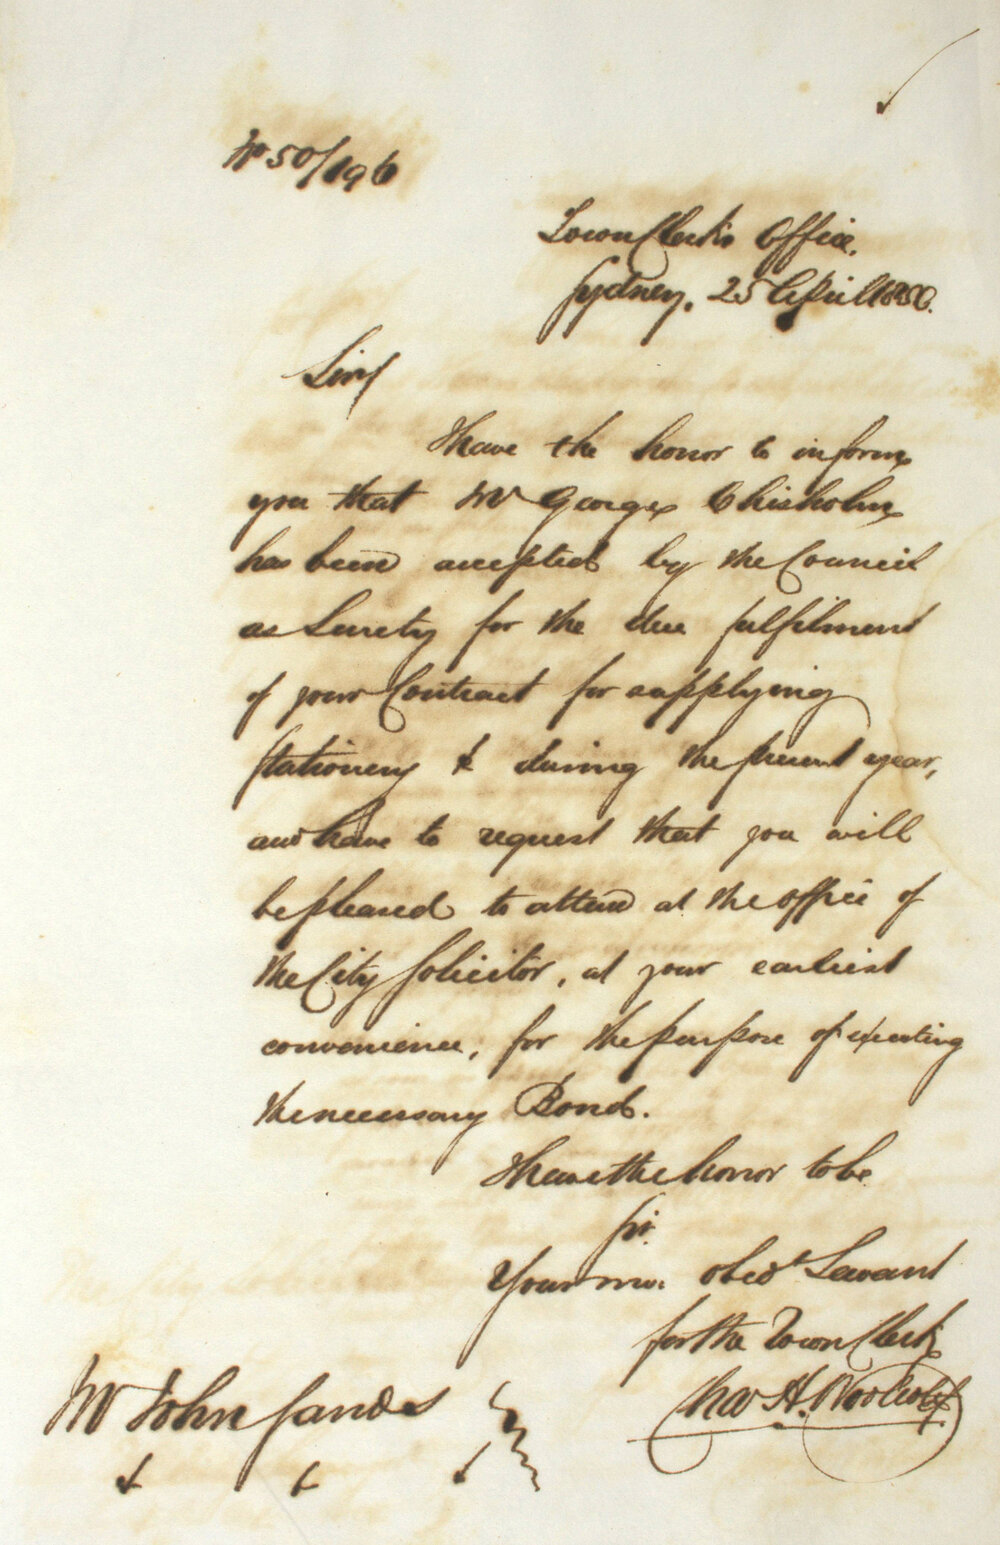 No 50/196
Town Clerk's Office.
Sydney, 25 April 1850.
Sir,
I have the honor to inform
you that Mr George Chisholm
has been accepted by the Council
as Surety for the due fulfilment
of your Contract for supplying
Stationery & during the present year,
and have to request that you will
be pleased to attend at the office of
the City Solicitor, at your earliest
convenience, for the purpose of executing
the necessary Bond.
I have the honor to be
Sir
Your mo. obedt Servant
for the Town Clerk
Chas H. Woolcott
Mr John Sands
& & &